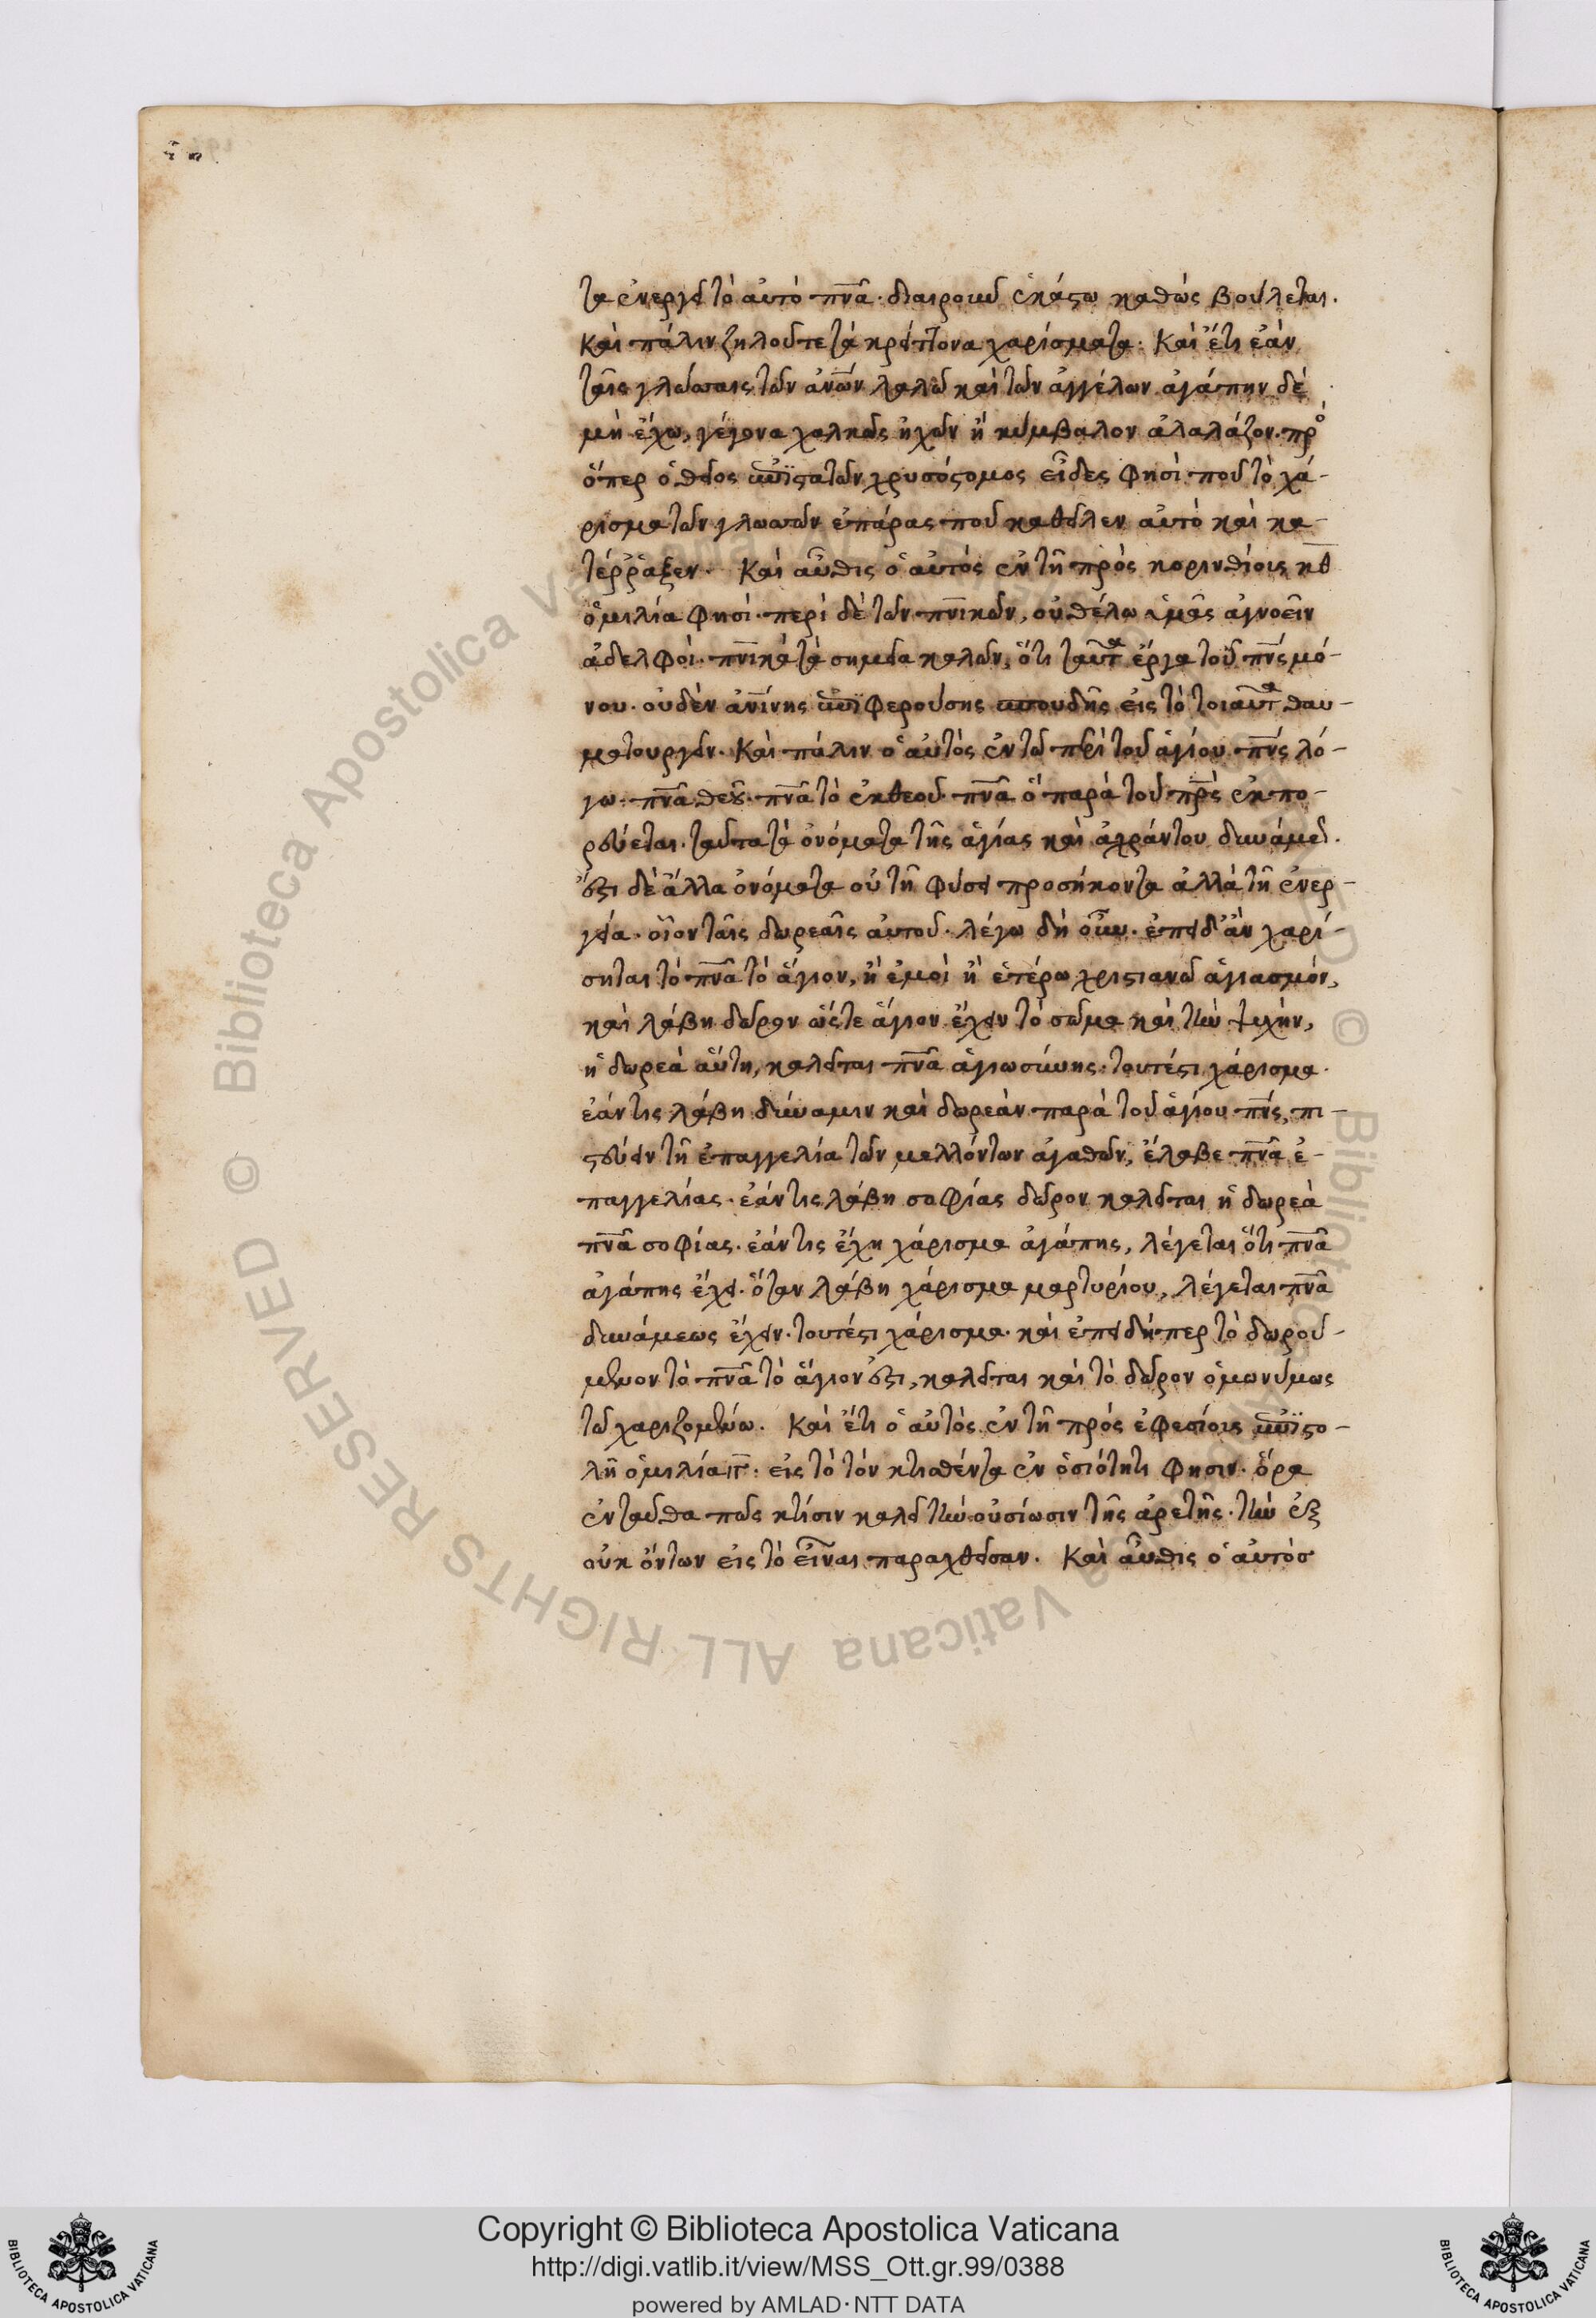 τα ἐνεργεῖ τὸ αὐτὸ πν̅α̅· διαιροῦν ἑκάστω καθὼς βούλεται.
Καὶ πάλιν ζηλοῦτε τὰ κρείττονα χαρίσματα. Καὶ ἔτι ἐὰν
ταῖς γλώσσαις τῶν ἀν̅ω̅ν λαλῶ καὶ τῶν ἀγγέλων ἀγάπην δὲ
μὴ ἔχω, γέγονα χαλκὸς ἠχῶν ἢ κύμβαλον ἀλαλάζον. πρὸ
ὅπερ ὁ θεῖος ἐπιστατῶν χρυσόστομος εἶδες φησὶ ποῦ τὸ χά-
ρισμα τῶν γλωσσῶν ἐπάρας ποῦ καθεῖλεν αὐτὸ καὶ κα-
τέρῥαξεν. Καὶ αὖθις ὁ αὐτὸς ἐν τῆ πρὸς κορινθίοις κθ̅
ὁμιλία φησὶ· περὶ δὲ τῶν πν̅ικῶν, οὐ θέλω ὑμᾶς ἀγνοεῖν
ἀδελφοί· πν̅ικὰ τὰ σημεῖα καλῶν, ὅτι ταῦτα ἔργα τοῦ πν̅ς μό-
νου· οὐδὲν ἀν̅ίνης ἐπιφερούσης σπουδῆς εἰς τὸ τοιαῦτα θαυ-
ματουργεῖν. Καὶ πάλιν ὁ αὐτὸς ἐν τῶ περὶ τοῦ ἁγίου πν̅ς λό-
γω· πν̅α̅ θεοῦ· πν̅α̅ τὸ ἐκ θεοῦ· πν̅α̅ ὃ παρὰ τοῦ πρ̅ς ἐκπο-
ρεύεται· ταῦτα τὰ ὀνόματα τῆς ἁγίας καὶ ἀχράντου δυνάμεως.
ἔστι δὲ ἄλλα ὀνόματα οὐ τῆ φύσει προσήκοντα ἀλλὰ τῆ ἐνερ-
γεία· οἷον ταῖς δωρεαῖς αὐτοῦ· λέγω δὴ οὖν· ἐπειδ' ἂν χαρί-
σηται τὸ πν̅α̅ τὸ ἅγιον, ἢ ἐμοὶ ἢ ἑτέρω χριστιανῶ ἁγιασμόν,
καὶ λάβη δῶρον ὥστε ἅγιον ἔχειν τὸ σῶμα καὶ τὴν ψυχήν,
ἡ δωρεὰ αὕτη, καλεῖται πν̅α̅ ἁγιωσύνης· τουτέστι χάρισμα.
ἐάν τις λάβη δύναμιν καὶ δωρεὰν παρὰ τοῦ ἁγίου πν̅ς, πι-
στεύειν τῆ ἐπαγγελία τῶν μελλόντων ἀγαθῶν, ἔλαβε πν̅α̅ ἐ-
παγγελίας· ἐάν τις λάβη σοφίας δῶρον καλεῖται ἡ δωρεὰ
πν̅α̅ σοφίας· ἐάν τις ἔχη χάρισμα ἀγάπης, λέγεται ὅτι πν̅α̅
ἀγάπης ἔχει· ὅταν λάβη χάρισμα μαρτυρίου, λέγεται πν̅α̅
δυνάμεως ἔχειν· τουτέστι χάρισμα· καὶ ἐπειδήπερ τὸ δωρού-
μενον τὸ πν̅α̅ τὸ ἅγιον ἐστι, καλεῖται καὶ τὸ δῶρον ὁμωνύμως
τῶ χαριζομένω. Καὶ ἔτι ὁ αὐτὸς ἐν τῆ πρὸς ἐφεσίοις ἐπιστο-
λῆ ὁμιλία ιγ̅· εἰς τὸ τὸν κτισθέντα ἐν ὁσιότητι φησιν· ὅρα
ἐνταῦθα πῶς κτίσιν καλεῖ τὴν οὐσίωσιν τῆς ἀρετῆς· τὴν ἐξ
οὐκ ὄντων εἰς τὸ εἶναι παραχθεῖσαν. Καὶ αὖθις ὁ αὐτὸσ
© Biblioteca Apostolica Vaticana ALL RIGHTS RESERVED
Copyright © Biblioteca Apostolica Vaticana
http://digi.vatlib.it/view/MSS_Ott.gr.99/0388
powered by AMLAD·NTT DATA
BIBLIOTECA APOSTOLICA VATICANA
BIBLIOTECA APOSTOLICA VATICANA